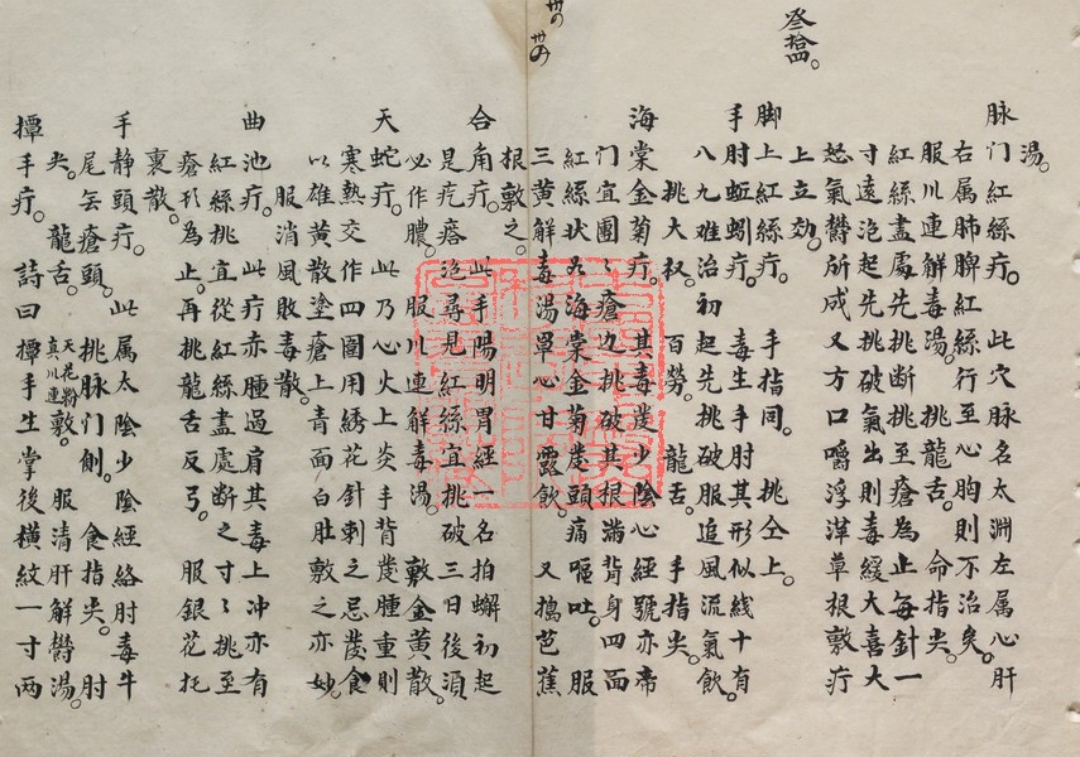 叁拾四。
湯。
脉门紅絲疔。此穴脉名太淵左属心肝
右属肺脾紅絲行至心胸則不治矣。
服川連解毒湯。挑龍舌。命指尖。
紅絲盡處先挑断挑至瘡為止每針一
寸遠泡起先挑破氣出則毒緩大喜大
怒氣欝所成又方口嚼浮萍草根敷疔
上立効。
脚上紅絲疔。手指同。挑仝上。
手肘蚯蚓疔。毒生手肘其形似线十有
八九难治初起先挑破服追風流氣飲。
挑大杈。百勞。龍舌。手指尖。
海棠金菊疔。其毒發少陰心經號亦帝
门宜圍〻瘡边挑破其根满背身四面
紅絲状如海棠金菊發頭痛嘔吐。服
三黄解毒湯罩心甘露飲。又搗芭蕉
根敷之。
合角疔。此手陽明胃經一名拍蠏初起
是疙瘩泡尋見紅絲宜挑破三日後須
必作膿。服川連解毒湯。敷金黄散。
天蛇疔。此乃心火上炎手背發腫重則
寒熱交作四圍用綉花針刺之忌發食
以雄黄散塗瘡上青面白肚敷之亦妙。
服消風敗毒散。
曲池疔。此疔赤腫過肩其毒上冲亦有
紅絲挑宜從紅絲盡處断之寸〻挑至
瘡形為止。再挑龍舌反弓。服銀花托
裏散。
手静頭疔。此属太陰少陰經絡肘毒牛
尾缶瘡頭。挑脉门側。食指尖。肘
尖。龍舌。天花粉真川連敷。服清肝解欝湯。
撢手疔。詩曰撢手生掌後横紋一寸两
卅四
卅四